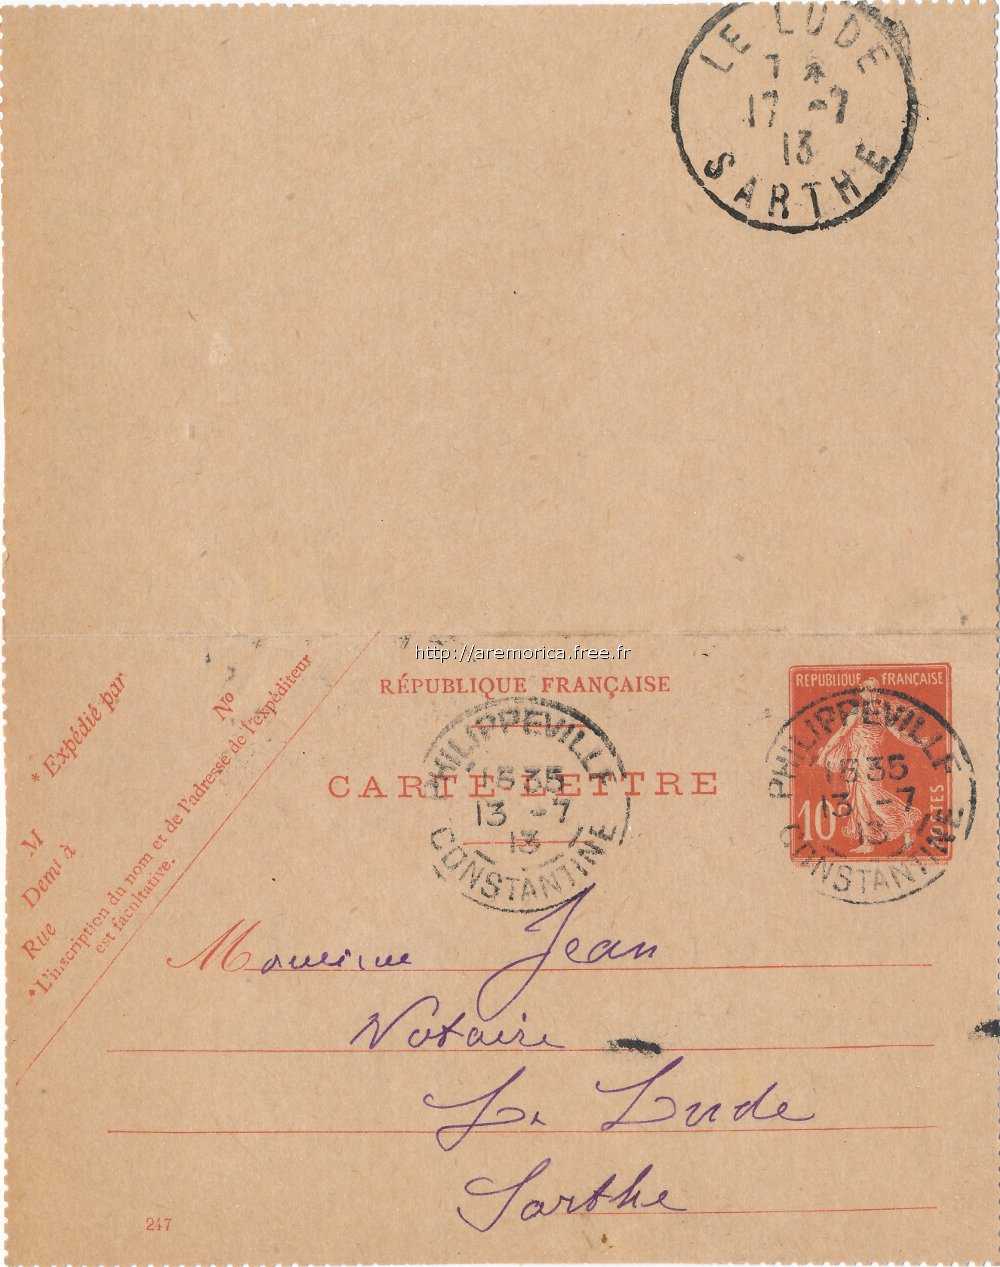 LE LUDE
7 *
17 -7
13
SARTHE
http://aremorica.free.fr
RÉPUBLIQUE FRANÇAISE
CARTE-LETTRE
PHILIPPEVILLE
15 35
13 -7
13
CONSTANTINE
RÉPUBLIQUE FRANÇAISE
10
POSTES
PHILIPPEVILLE
15 35
13 -7
13
CONSTANTINE
* Expédié par
M
Demt à
Rue
No
* L'inscription du nom et de l'adresse de l'expéditeur
est facultative.
Monsieur Jean
Notaire
Le Lude
Sarthe
247